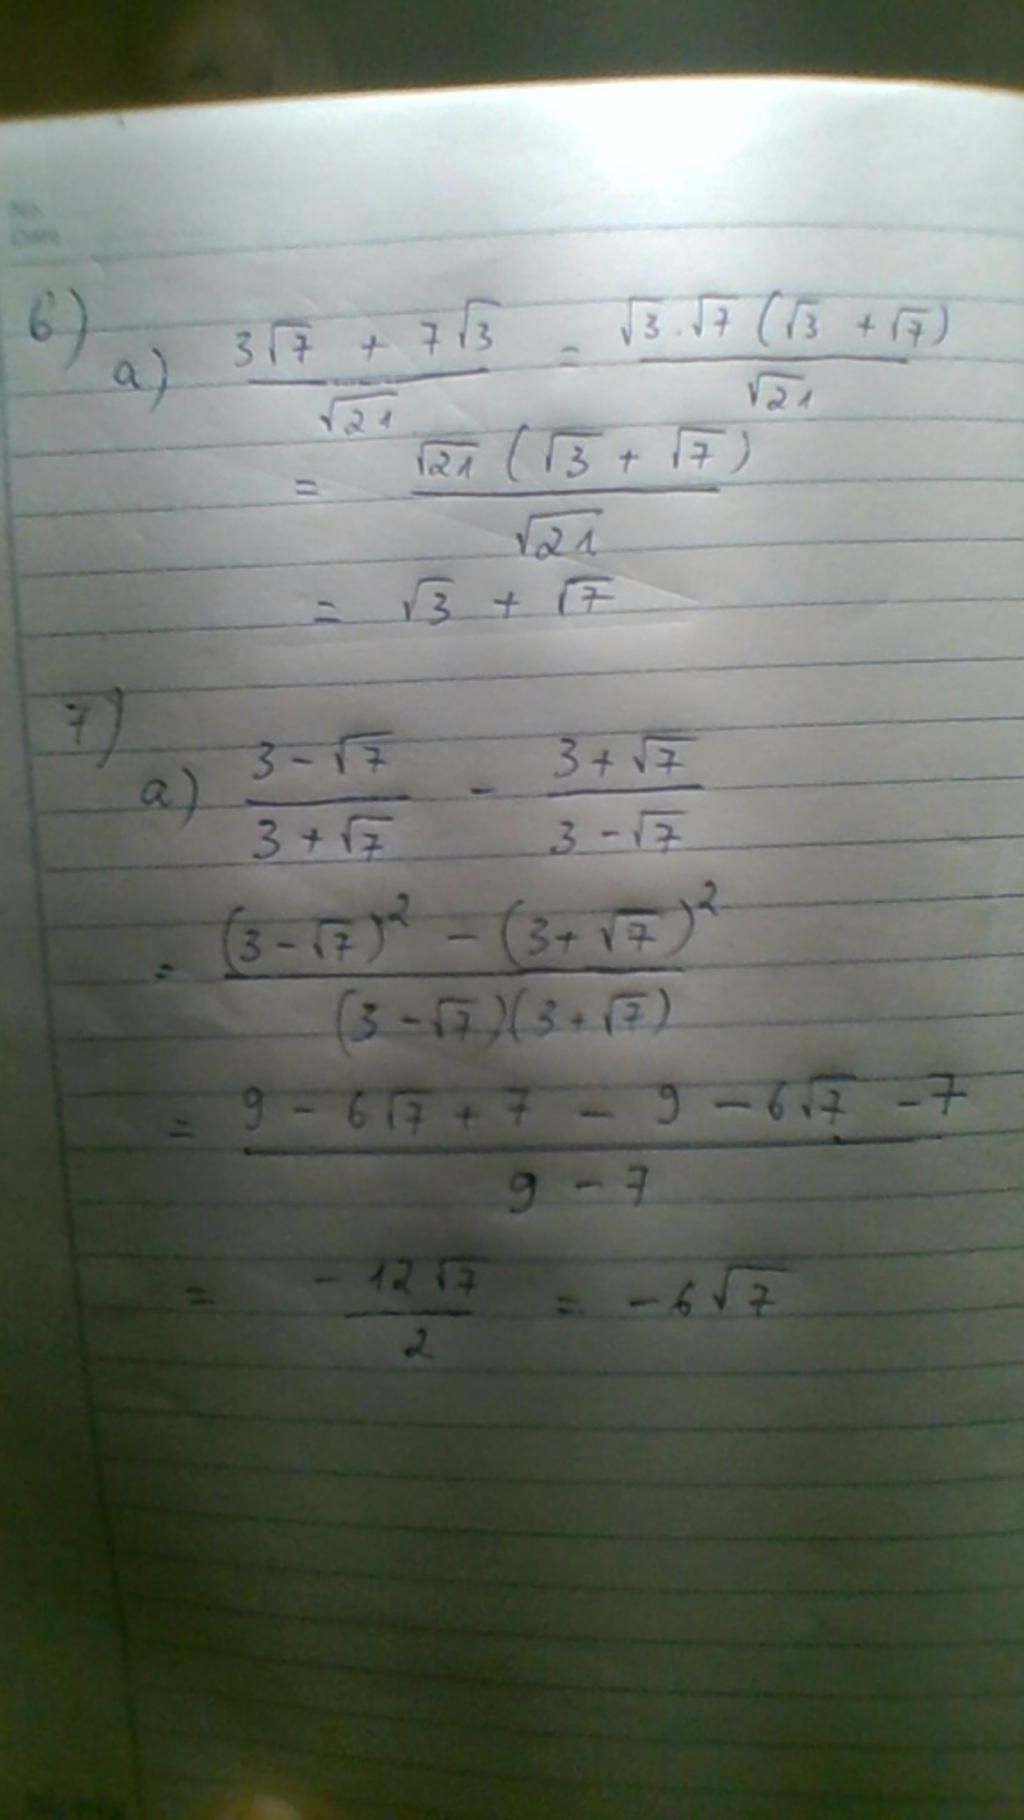 No.
Date
6)
a) (3√7 + 7√3)/√21 = (√3.√7 (√3 + √7))/√21
= (√21 (√3 + √7))/√21
= √3 + √7
7)
a) (3 - √7)/(3 + √7) - (3 + √7)/(3 - √7)
= ((3 - √7)² - (3 + √7)²)/((3 - √7)(3 + √7))
= (9 - 6√7 + 7 - 9 - 6√7 - 7)/(9 - 7)
= (-12√7)/2 = -6√7